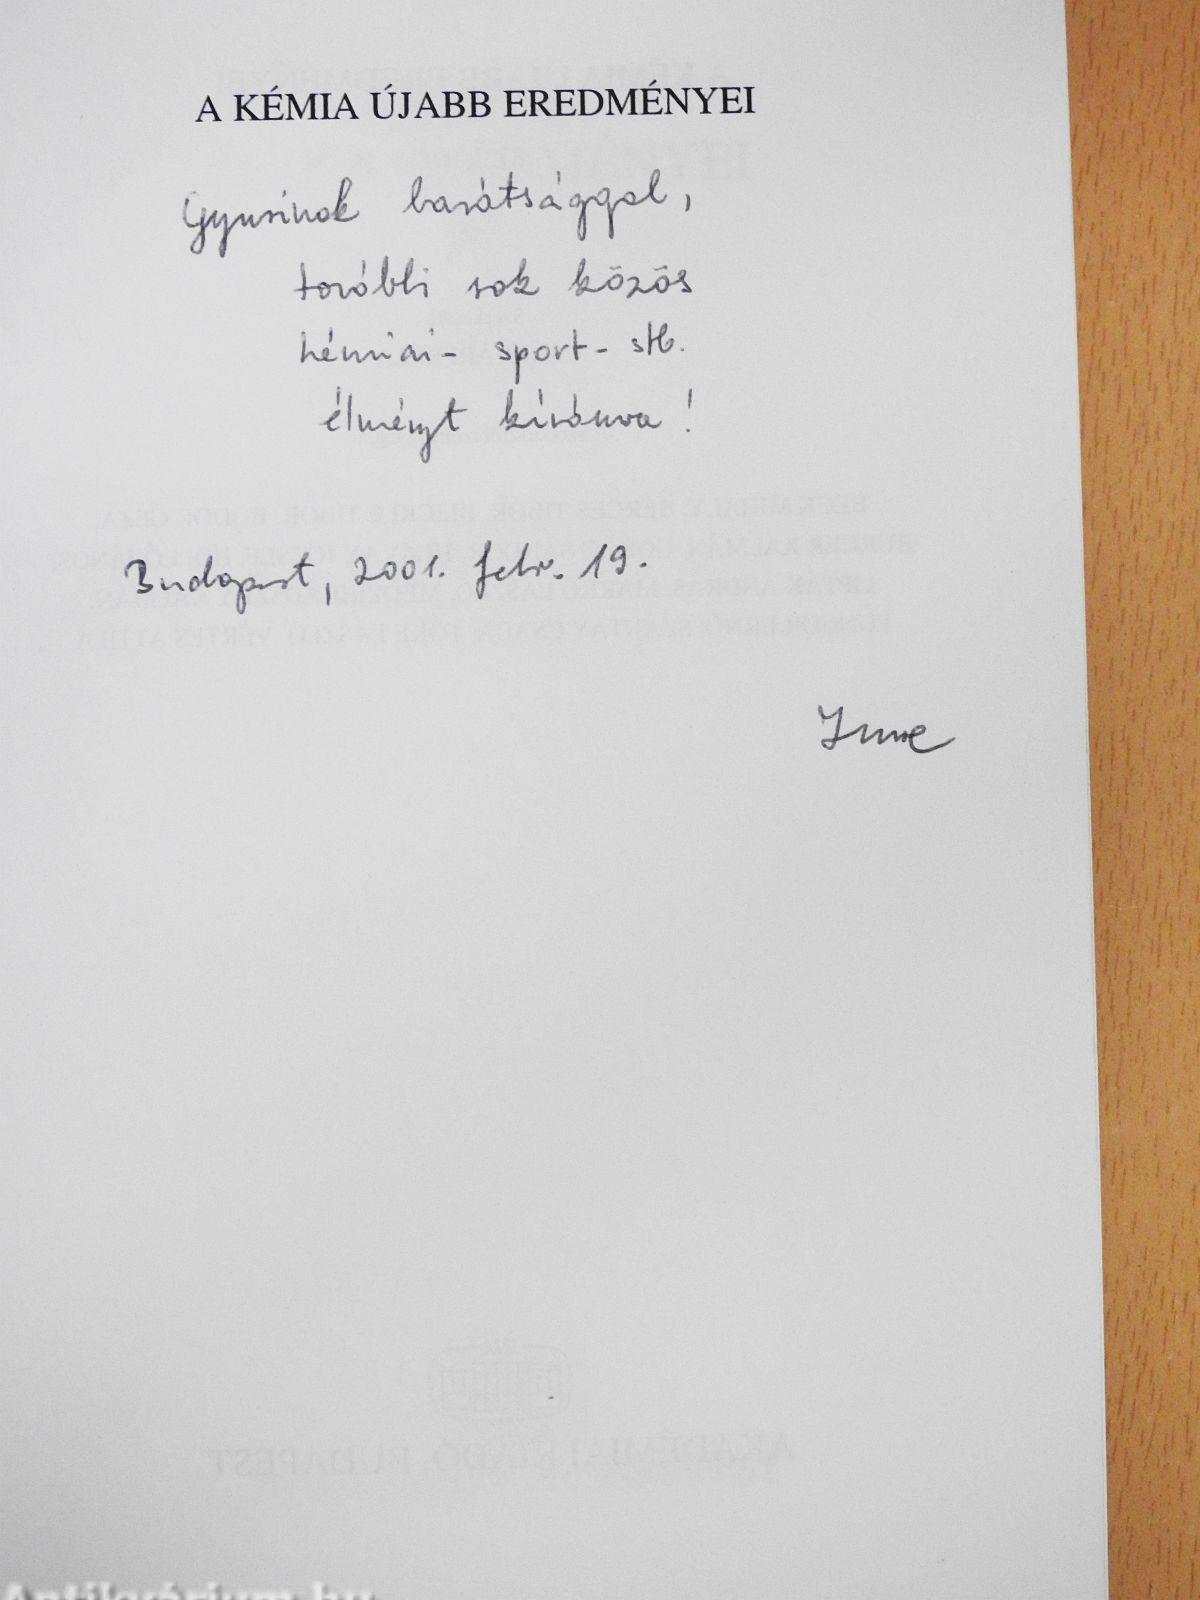 A KÉMIA ÚJABB EREDMÉNYEI
Gyurinak barátsággal,
további sok közös
kémiai- sport- stb.
élményt kívánva!
Budapest, 2001. febr. 19.
Imre
AKADÉMIAI KIADÓ, BUDAPEST
Antikvárium.hu